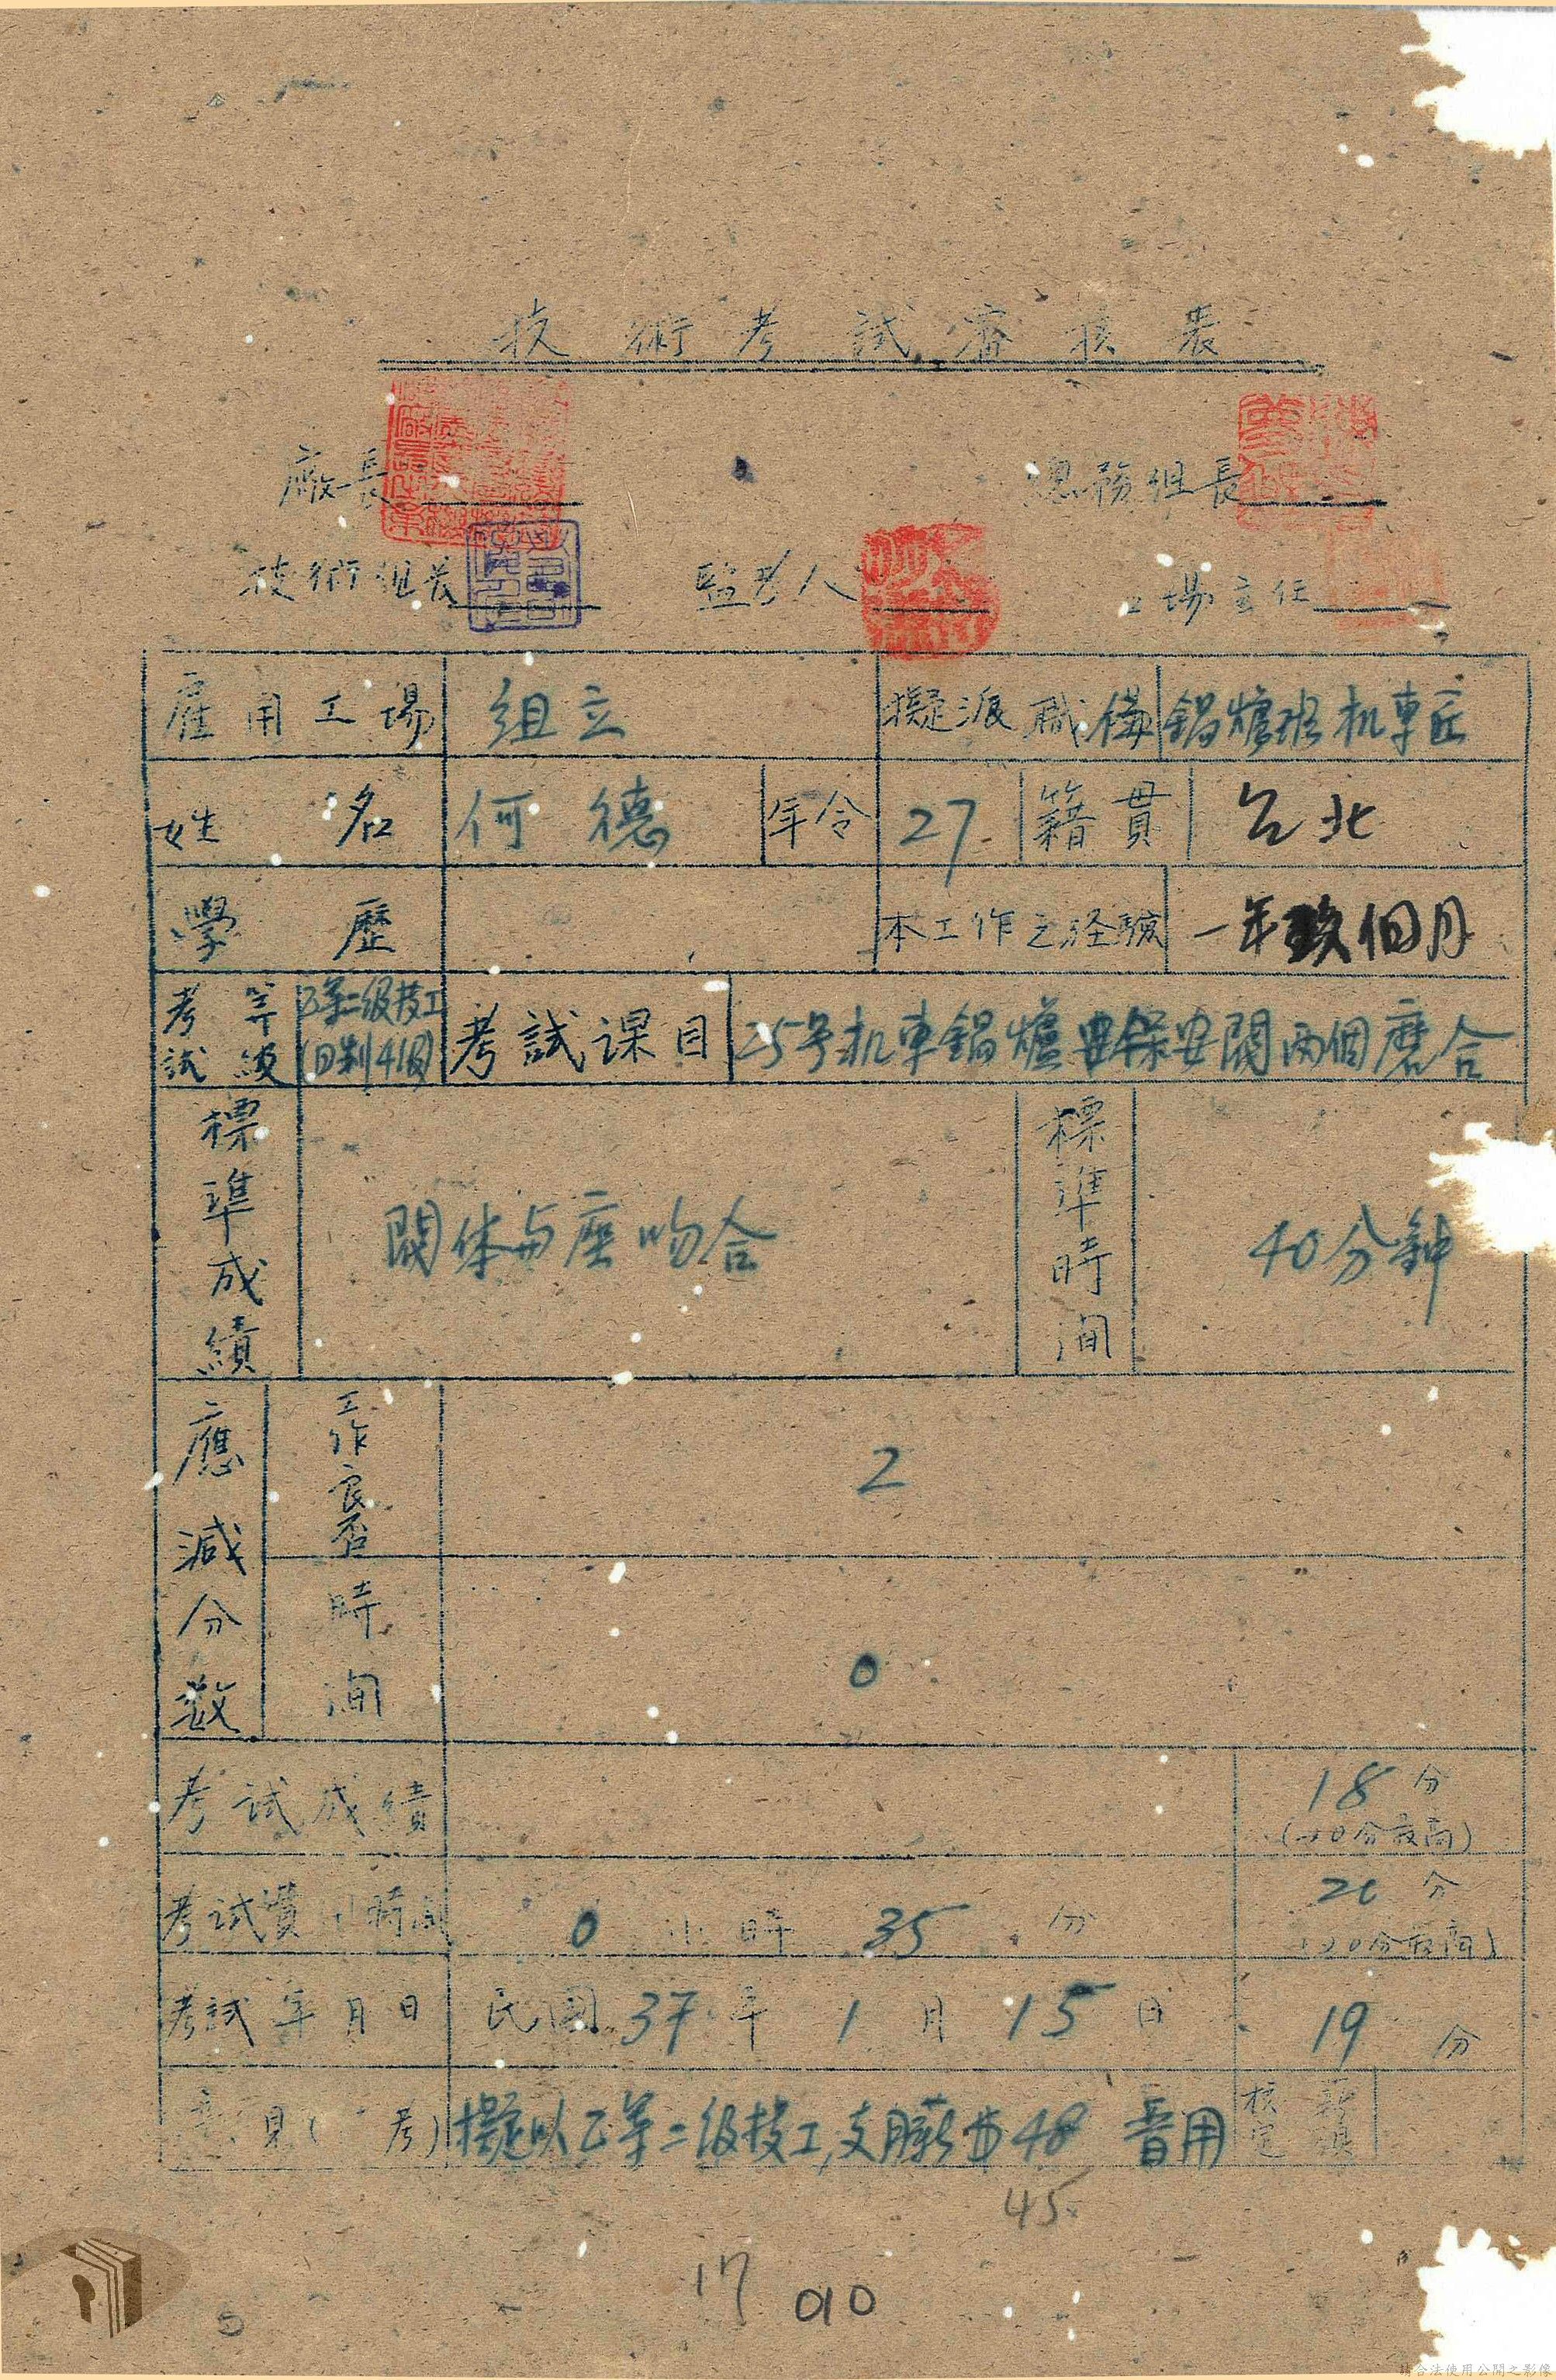 技術考試審核表
廠長 總務組長
技術組長 監考人 工場主任
雇用工場 組立 擬派職務 鍋爐班机車匠
姓名 何德 年令 27 籍貫 台北
學歷 本工作之経驗 一年玖個月
考試等級 乙等二級技工(日制4級) 考試課目 25号机車鍋爐保安閥兩個磨合
標準成績 閥体与座吻合 標準時间 40分鈡
應減分数 工作良否 2
時间 0
考試成績 18分
(20分最高)
考試費用時间 0小時35分 20分
(20分最高)
考試年月日 民國37年1月15日 19分
意見(考) 擬以乙等二級技工,支月薪 48 晉用 核定薪級
45
17 010
請合法使用公開之影像